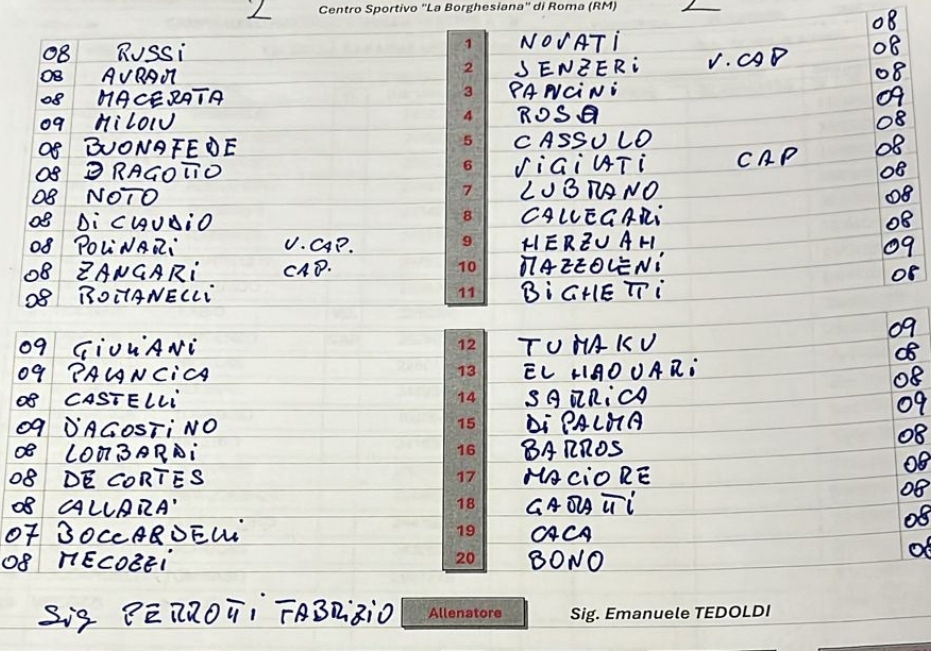 Centro Sportivo "La Borghesiana" di Roma (RM)
08 RUSSI 1 NOVATI 08
08 AVRAM 2 SENZERI V.CAP 08
08 MACERATA 3 PANCINI 08
09 MILOIU 4 ROSA 09
08 BUONAFEDE 5 CASSULO 08
08 DRAGOTTO 6 VIGILATI CAP 08
08 NOTO 7 LUBRANO 08
08 Di CLAUDIO 8 CALLEGARI 08
08 POLINARI V.CAP. 9 HERZUAH 08
08 ZANGARI CAP. 10 MAZZOLENI 09
08 ROMANELLI 11 BIGHETTI 08
09 GIULIANI 12 TUMAKU 09
09 PALANCICA 13 EL HAOUARI 08
08 CASTELLI 14 SARRICA 08
09 D'AGOSTINO 15 Di PALMA 09
08 LOMBARDI 16 BARROS 08
08 DE CORTES 17 MACIORE 08
08 CALLARA' 18 GAMATTI 08
07 BOCCARDELLI 19 CACA 08
08 MECOZZI 20 BONO 08
Sig PERROTTI FABRIZIO Allenatore Sig. Emanuele TEDOLDI